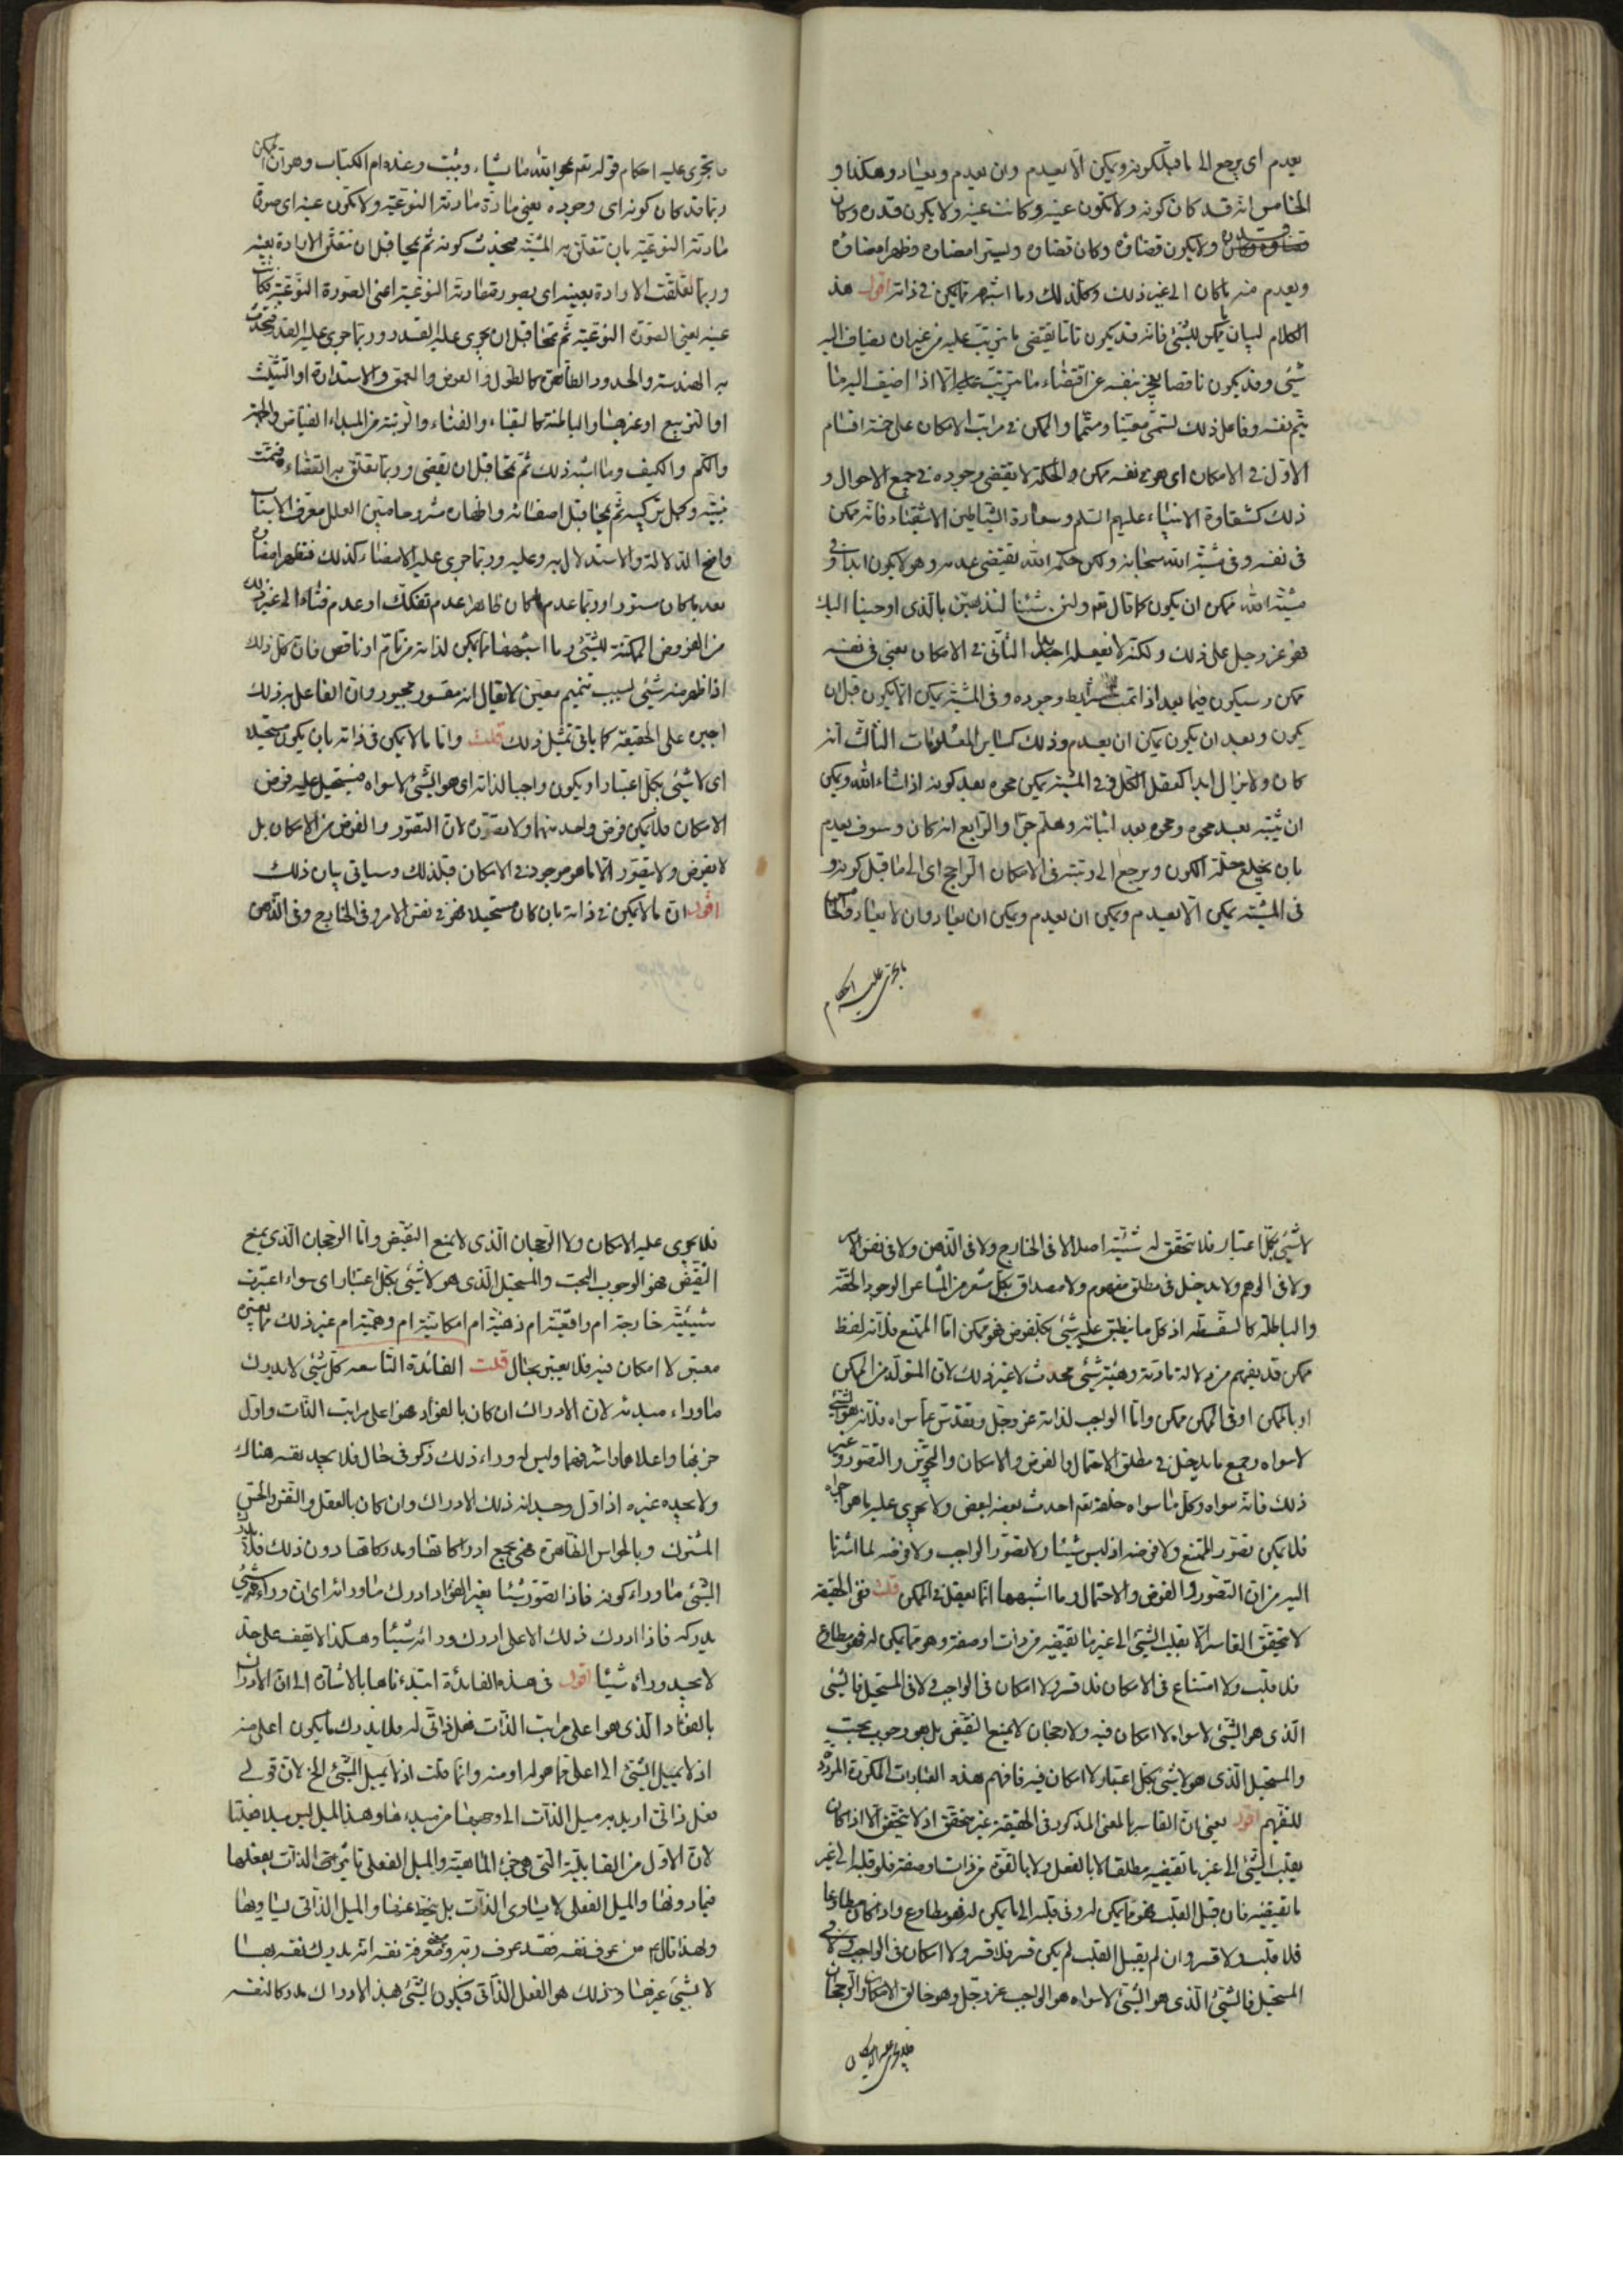 يعدم اى يرجع الى ما قبل كونه ويمكن الّا يعدم وان يعدم ويعاد وهكذا و
الخامس انّه قد كان كونه ولا تكون عينه وكانت عينه ولا يكون قدره وكان
قدره ولا يكون قضاؤه وكان قضاؤه وليستر امضاؤه وظهر امضاؤه
ويعدم منه ما كان الى غير ذلك وكل ذلك وما اشبهه مما يمكن فى ذاته اقول هذ
الكلام لبيان ما يمكن للشئ فانّه قد يكون تامّا يقتضى ما يترتب عليه من غير ان يضاف اليه
شئ وقد يكون ناقصا يعجز بنفسه عن اقتضاء ما يترتب عليه الّا اذا اضيف اليه ما
يتمّم نقصه وفاعل ذلك يسمّى معينا ومتمّما والممكن فى مراتب الامكان على خمسة اقسام
الاوّل فى الامكان اى هو فى نفسه ممكن والحكمة لا يقتضى وجوده فى جميع الاحوال و
ذلك كشقاوة الانبياء عليهم السلم وسعادة الشياطين الاشقياء فانّه ممكن
فى نفسه وفى مشيّة الله سبحانه ولكن حكمة الله يقتضى عدمه وهو لا يكون ابدا وفى
مشيّة الله ممكن ان يكون كما قال تعم ولئن شئنا لنذهبنّ بالّذى اوحينا اليك
فهو عز وجل على ذلك ولكنّه لا يفعله ابدا الثّانى فى الامكان يعنى فى نفسه
ممكن وسيكون فيما بعد اذا تمت شرايط وجوده وفى المشيّة يمكن الّا يكون قبل ان
يكون وبعد ان يكون يمكن ان يعدم وذلك كساير المعلومات الثالث انّه
كان ولا يزال ابدا كعقل الكل ففى المشيّة يمكن محوه بعد كونه اذا شاء الله ويمكن
ان يثبته بعد محوه ومحوه بعد اثباته وهلم جرّا والرّابع انّه كان وسوف يعدم
بان يخلع حلّة الكون ويرجع الى رتبته فى الامكان الراجح اى الى ما قبل كونه و
فى المشيّة يمكن الّا يعدم ويمكن ان يعدم ويمكن ان يعاد وان لا يعاد والخامس
ما تجرى عليه احكام
ما تجرى عليه احكام قوله تعم يمحو الله ما يشاء ويثبت وعنده ام الكتاب وهو ان الممكن
ربّما قد كان كونه اى وجوده يعنى مادّة مادته النوعيّة ولا تكون عينه اى صورة
مادته النوعيّة بان تتعلّق به المشيّة فيحدث كونه ثم يمحا قبل ان تتعلّق الارادة بعينه
وربما تعلّقت الارادة بعينه اى بصورة مادته النوعيّة اعنى الصورة النوعيّة فكانت
عينه يعنى الصورة النوعيّة ثم يمحا قبل ان يجرى عليه القدر وربما جرى عليه القدر فتحدث
به الهندسة والحدود الظاهرة كالطول والعرض والعمق والاستدارة او التثليث
او التربيع او غيرها والباطنة كالبقاء والفناء والرتبة من المبداء الفياض والجهة
والكم والكيف وما اشبه ذلك ثم يمحا قبل ان يقضى وربما تعلّق به القضاء فتمّت
بنيته وكمل تركيبه ثم يمحا قبل امضائه واظهاره مشروحا مبين العلل معرّف الاسباب
واضح الدلالة والاستدلال به وعليه وربما جرى عليه الامضاء كذلك فتظهر امضاؤه
بعد ما كان مستورا وربما عدم ما كان ظاهرا عدم تفكك او عدم فناء الى غير ذلك
من الفروض الممكنة للشئ وما اشبهها مما يمكن لذاته من تام او ناقص فانّ كل ذلك
اذا ظهر منه شئ بسبب تتميم معين لا يقال انه مقسور مجبور وان الفاعل به ذلك
اجبره على الحقيقة كما ياتى تمثيل ذلك قلت وامّا ما لا يمكن فى ذاته بان يكون مستحيلا
اى لا شئ بكل اعتبار او يكون واجبا لذاته اى هو الشئ لا سواه فيستحيل عليه فرض
الامكان فلا يمكن فرض واحد منهما ولا تصوّره لانّ التصوّر والفرض من الامكان بل
لا يفرض ولا يتصوّر الّا ما هو موجود فى الامكان قبل ذلك وسياتى بيان ذلك
اقول ان ما لا يمكن فى ذاته بان كان مستحيلا فهو فى نفس الامر وفى الخارج وفى الذّهن
لا شئ بكل اعتبار فلا تتحقق له شيئيّة اصلا لا فى الخارج ولا فى الذّهن ولا فى نفس الامر
ولا فى الوهم ولا يدخل فى مطلق مفهوم ولا مصداق بكل مشعر من المشاعر الوجود الحقّة
والباطلة كالسّفسطة اذ كل ما ينطبق عليه شئ بكل فرض فهو ممكن امّا الممتنع فلانّه لفظ
ممكن قد يفهم من دلالة مادته وهيئته شئ محدث لا غير ذلك لانّ المتولّد من الممكن
او بالممكن او فى الممكن ممكن وامّا الواجب لذاته عز وجل وتقدّس عمّا سواه فلانّه هو الشئ
لا سواه وجميع ما يدخل فى مطلق الاحتمال والفرض والامكان والتجويز والتصوّر وغير
ذلك فانّه سواه وكل ما سواه خلقه تعم احدث بعضه لبعض ولا يجرى عليه ما هو اجراه
فلا يمكن تصوّر الممتنع ولا فرضه اذ ليس شيئا ولا تصوّر الواجب ولا فرضه لما اشرنا
اليه من ان التصوّر والفرض والاحتمال وما اشبهها انّما تعقل فى الممكن قلت ففى الحقيقة
لا يتحقق القاسر الّا بقلب الشئ الى غير ما تقتضيه من ذات او صفة وهو ممّا يمكن له فهو مطاوع
فلا قلب ولا امتناع فى الامكان فلا قسر ولا امكان فى الواجب ولا فى المستحيل فالشئ
الّذى هو الشئ لا سواه لا امكان فيه ولا رجحان لا يمنع النّقيض بل هو وجوب بحت
والمستحيل الّذى هو لا شئ بكل اعتبار لا امكان فيه فافهم هذه العبارات المكرّرة المردّدة
للتفهيم اقول يعنى انّ القاسر بالمعنى المذكور فى الحقيقة غير متحقق اذ لا يتحقق الّا اذا كان
يقلب الشئ الى غير ما تقتضيه مطلقا لا بالفعل ولا بالقوّة من ذات او صفة فلو قلبه الى غير
ما تقتضيه فان قبل القلب فهو ممّا يمكن له وفى قلبه الى ما يمكن له فهو مطاوع واذا كان مطاوعا
فلا قلب ولا قسر وان لم يقبل القلب لم يكن قسر فلا قسر ولا امكان فى الواجب ولا فى
المستحيل فالشئ الّذى هو الشئ لا سواه هو الواجب عز وجل وهو خالق الامكان والرّجحان
فلا يجرى عليه الامكان
فلا يجرى عليه الامكان ولا الرّجحان الّذى لا يمنع النّقيض وامّا الرّجحان الّذى يمنع
النّقيض فهو الوجوب البحت والمستحيل الّذى هو لا شئ بكل اعتبار اى سواء اعتبرت
شيئيّته خارجة ام واقعيّة ام ذهنيّة ام امكانيّة ام وهميّة ام غير ذلك ممّا يعتبره
معتبر لا امكان فيه فلا يعتبر بحال قلت الفائدة التّاسعه كل شئ لا يدرك
ما وراء مبدئه لانّ الادراك ان كان بالفؤاد فهو اعلى مراتب الذّات واوّل
جزئيها واعلاهما واشرفهما وليس له وراء ذلك ذكر فى حال فلا يجد نفسه هناك
ولا يجده غيره اذ اوّل وجدانه ذلك الادراك وان كان بالعقل والنّفس والحسّ
المشترك وبالحواس الظّاهرة فهى بجميع ادراكاتها ومدركاتها دون ذلك فلا يدرك
الشّئ ما وراء كونه فاذا تصوّر شيئا بغير الفؤاد ادرك ما ورائه اى انّ وراءه شئ
يدركه فاذا ادرك ذلك الاعلى ادرك ورائه شيئا وهكذا لا يقف على حدّ
لا يجد وراءه شيئا اقول فى هذه الفائدة ابتدءناها بالاشارة الى انّ الادراك
بالفؤاد الّذى هو اعلى مراتب الذّات فعل ذاتى له فلا يدرك ما يكون اعلى منه
اذ لا يميل الشّئ الى اعلى ممّا هو له او منه وانّما قلت اذ لا يميل الشّئ الخ لانّ قولى
فعل ذاتى اريد به ميل الذّات الى وجهها من مبدءها وهذا الميل ليس ميلا فعليّا
لانّ الاوّل من القابليّة الّتى هى جزء الماهيّة والميل الفعلى تاثير من الذّات بفعلها
فيما دونها والميل الفعلى لا يساوى الذّات بل ينحطّ عنها والميل الذّاتى يساويها
ولهذا قال ع من عرف نفسه فقد عرف ربّه ومعنى معرفة نفسه انّه يدرك نفسه بها
لا بشئ غيرها وذلك هو الفعل الذّاتى فيكون الشّئ بهذا الادراك مدركا لنفسه